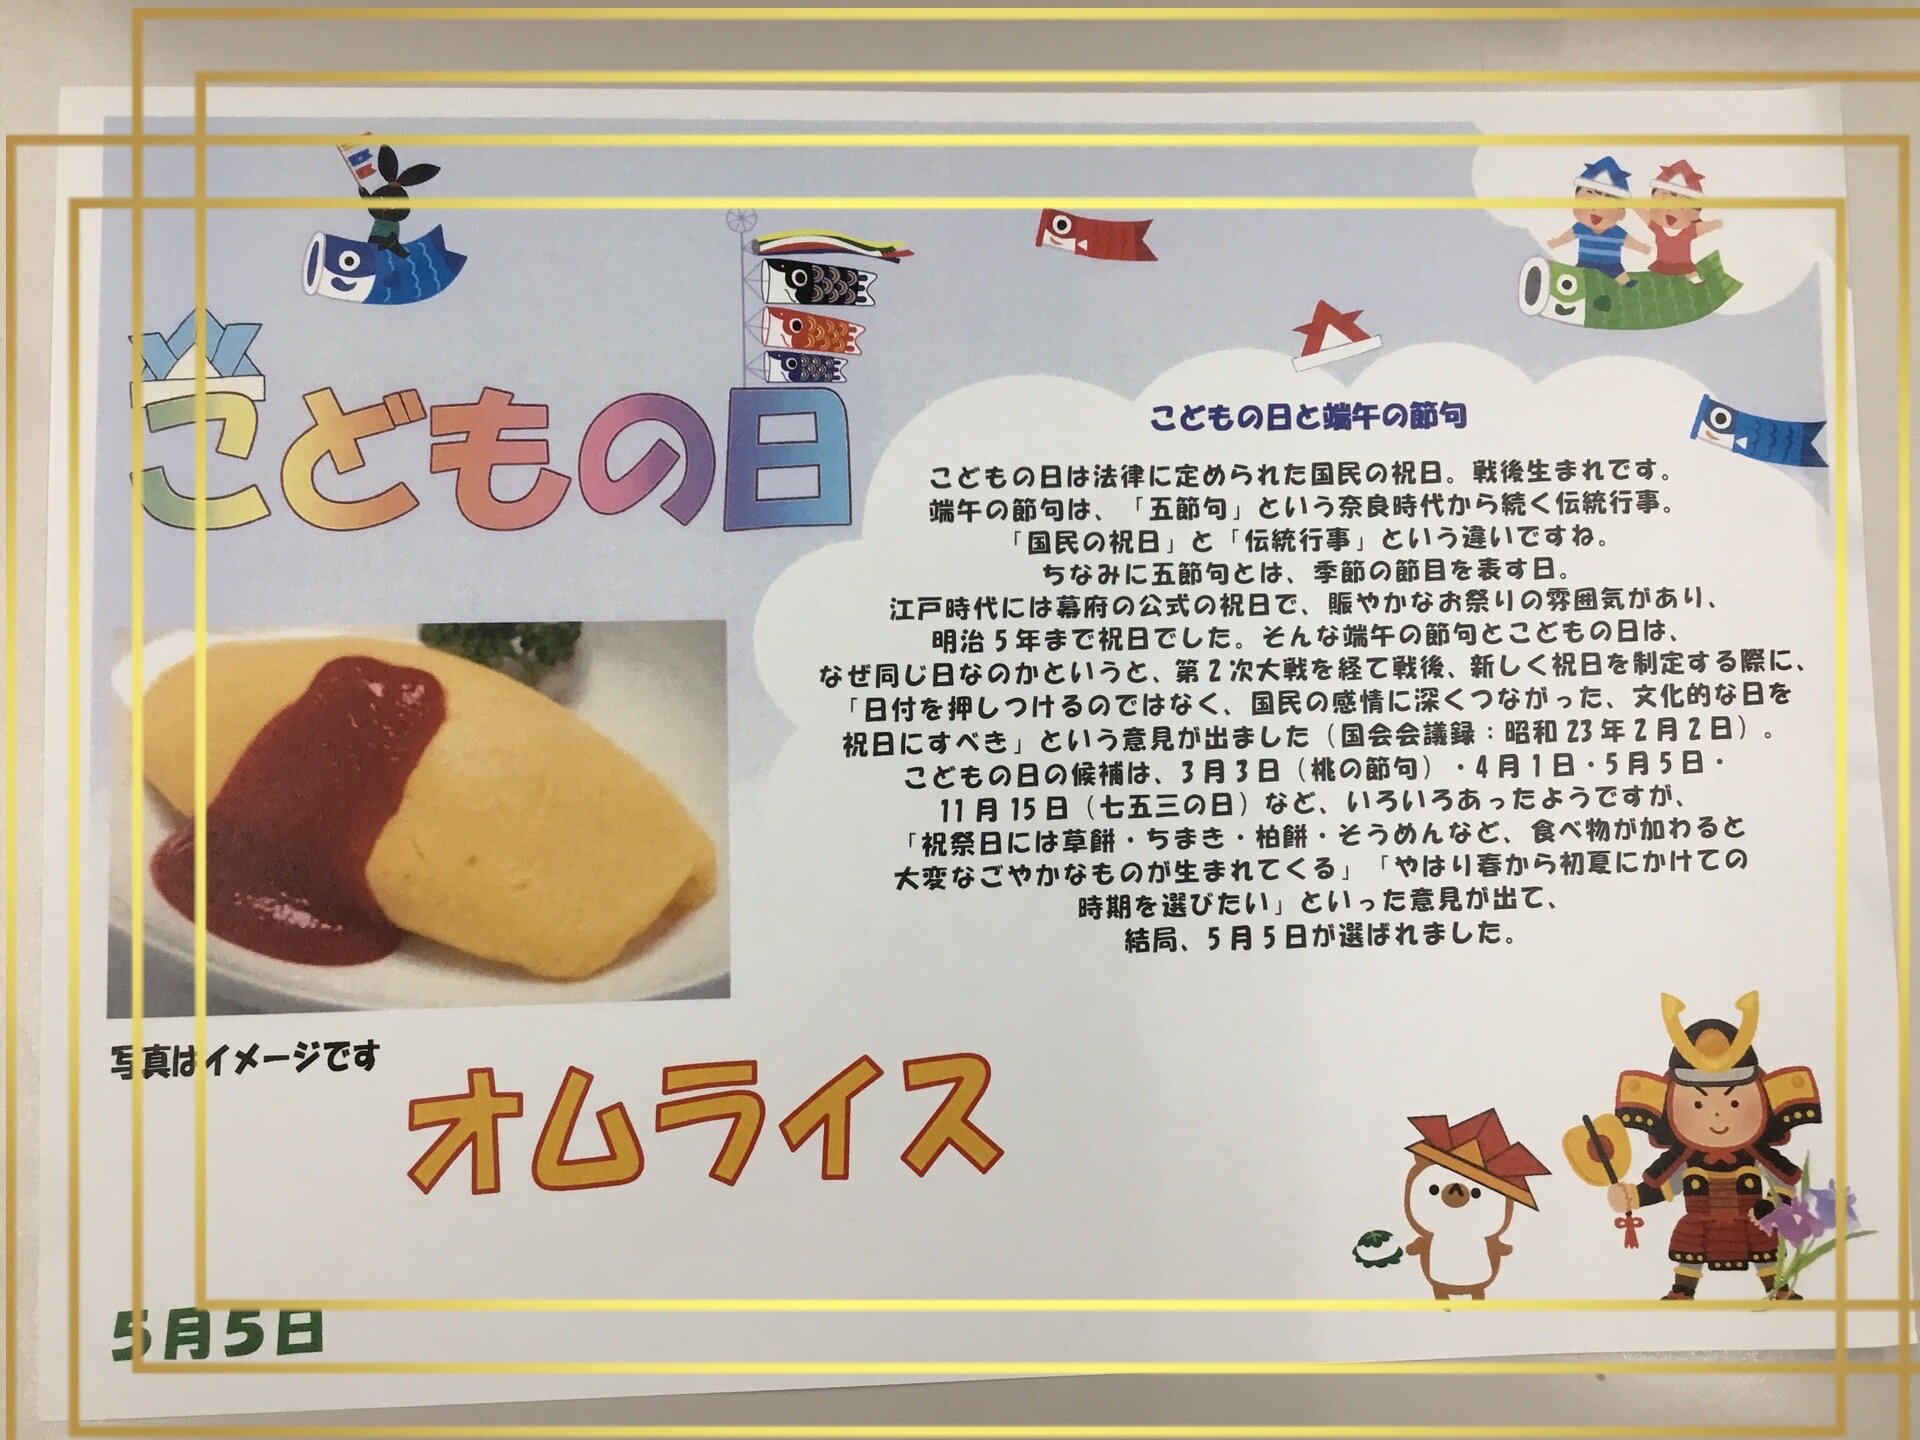 こどもの日
こどもの日と端午の節句
こどもの日は法律に定められた国民の祝日。戦後生まれです。
端午の節句は、「五節句」という奈良時代から続く伝統行事。
「国民の祝日」と「伝統行事」という違いですね。
ちなみに五節句とは、季節の節目を表す日。
江戸時代には幕府の公式の祝日で、賑やかなお祭りの雰囲気があり、
明治5年まで祝日でした。そんな端午の節句とこどもの日は、
なぜ同じ日なのかというと、第2次大戦を経て戦後、新しく祝日を制定する際に、
「日付を押しつけるのではなく、国民の感情に深くつながった、文化的な日を
祝日にすべき」という意見が出ました（国会会議録：昭和23年2月2日）。
こどもの日の候補は、3月3日（桃の節句）・4月1日・5月5日・
11月15日（七五三の日）など、いろいろあったようですが、
「祝祭日には草餅・ちまき・柏餅・そうめんなど、食べ物が加わると
大変なごやかなものが生まれてくる」「やはり春から初夏にかけての
時期を選びたい」といった意見が出て、
結局、5月5日が選ばれました。
写真はイメージです
オムライス
5月5日